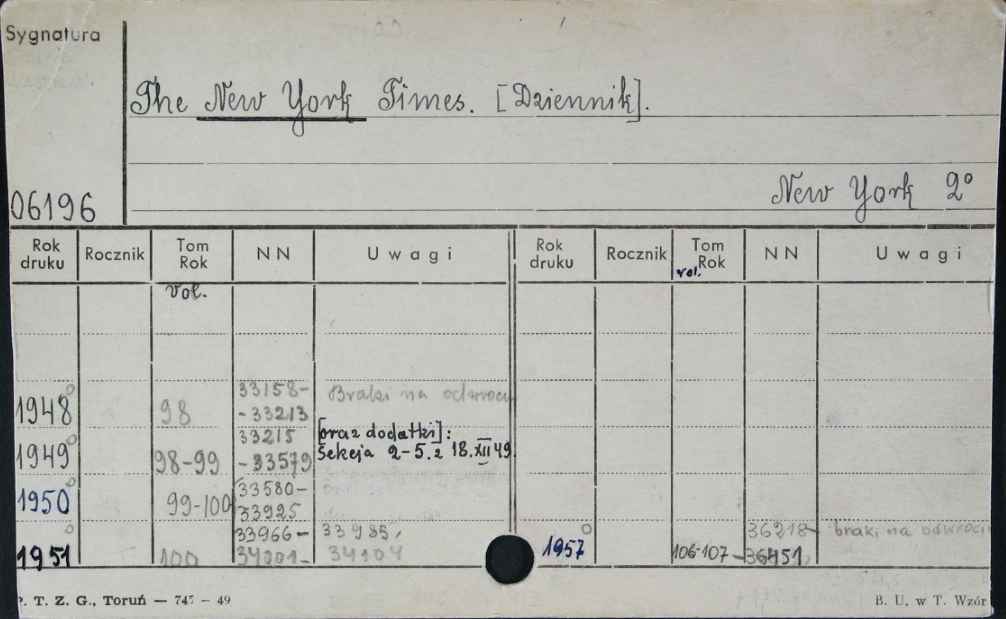 Sygnatura
The New York Times. [Dziennik].
New York 2°
06196
Rok druku Rocznik Tom Rok NN Uwagi Rok druku Rocznik Tom Rok NN Uwagi
vol. vol.
33158- Braki na odwrocie
1948° 98 -33213
33215 [oraz dodatki]:
1949° 98-99 -33579 Sekcja 2-5. z 18.XII 49.
33580-
1950° 99-100 33925
33966- 33985, 36218- braki na odwrocie
1951° 100 34201- 34104 1957° 106-107 -36451,
P. T. Z. G., Toruń — 745 — 49 B. U. w T. Wzór